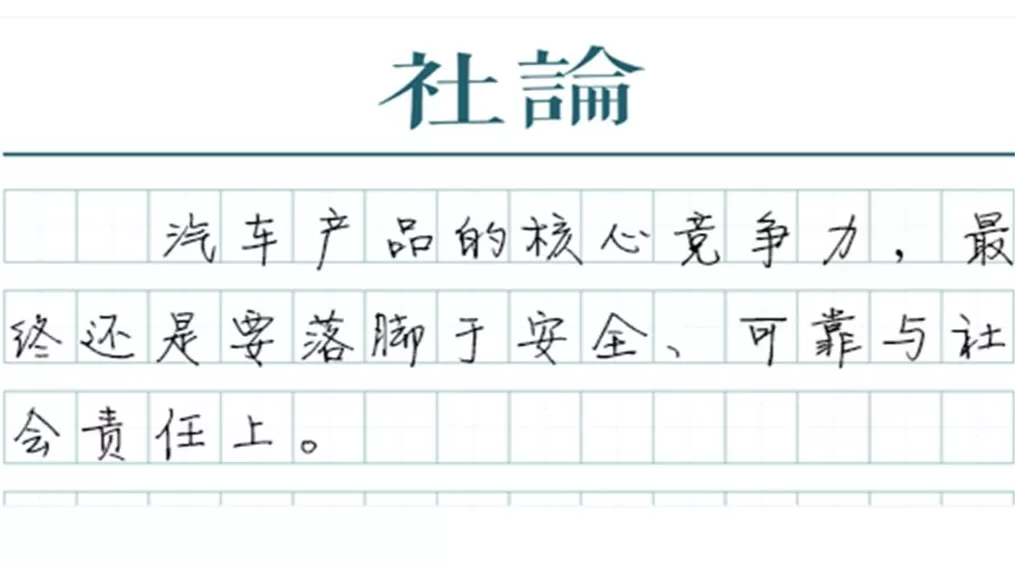 社論
汽车产品的核心竞争力，最
终还是要落脚于安全、可靠与社
会责任上。